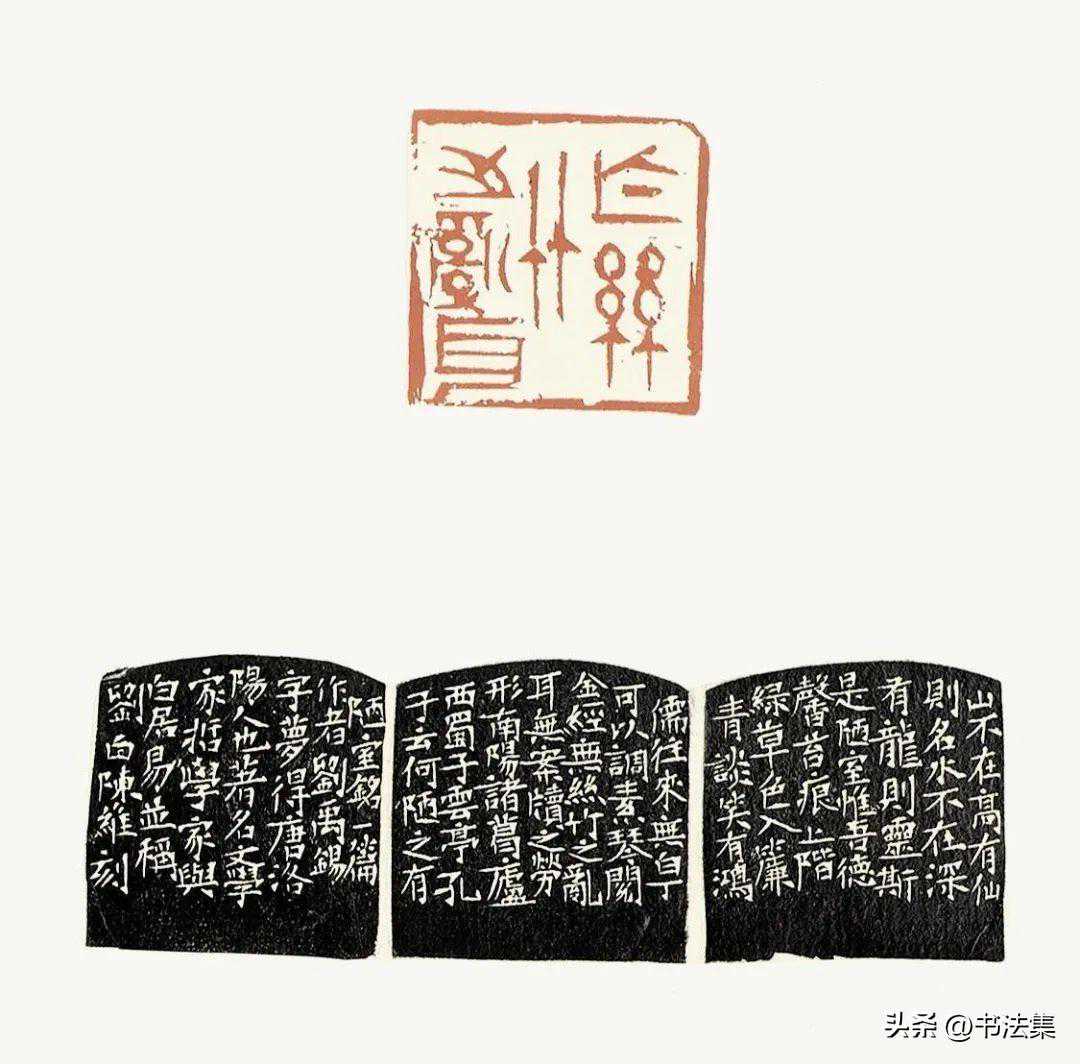 亡絲
竹
之亂耳
山不在高有仙
則名水不在深
有龍則靈斯
是陋室惟吾德
馨苔痕上階
綠草色入簾
青談笑有鴻
儒往來無白丁
可以調素琴閱
金經無絲竹之亂
耳無案牘之勞
形南陽諸葛廬
西蜀子雲亭孔
子云何陋之有
陋室銘一篇
作者劉禹錫
字夢得唐洛
陽人也著名文學
家哲學家與
白居易並稱
劉白陳維刻
头条 @书法集